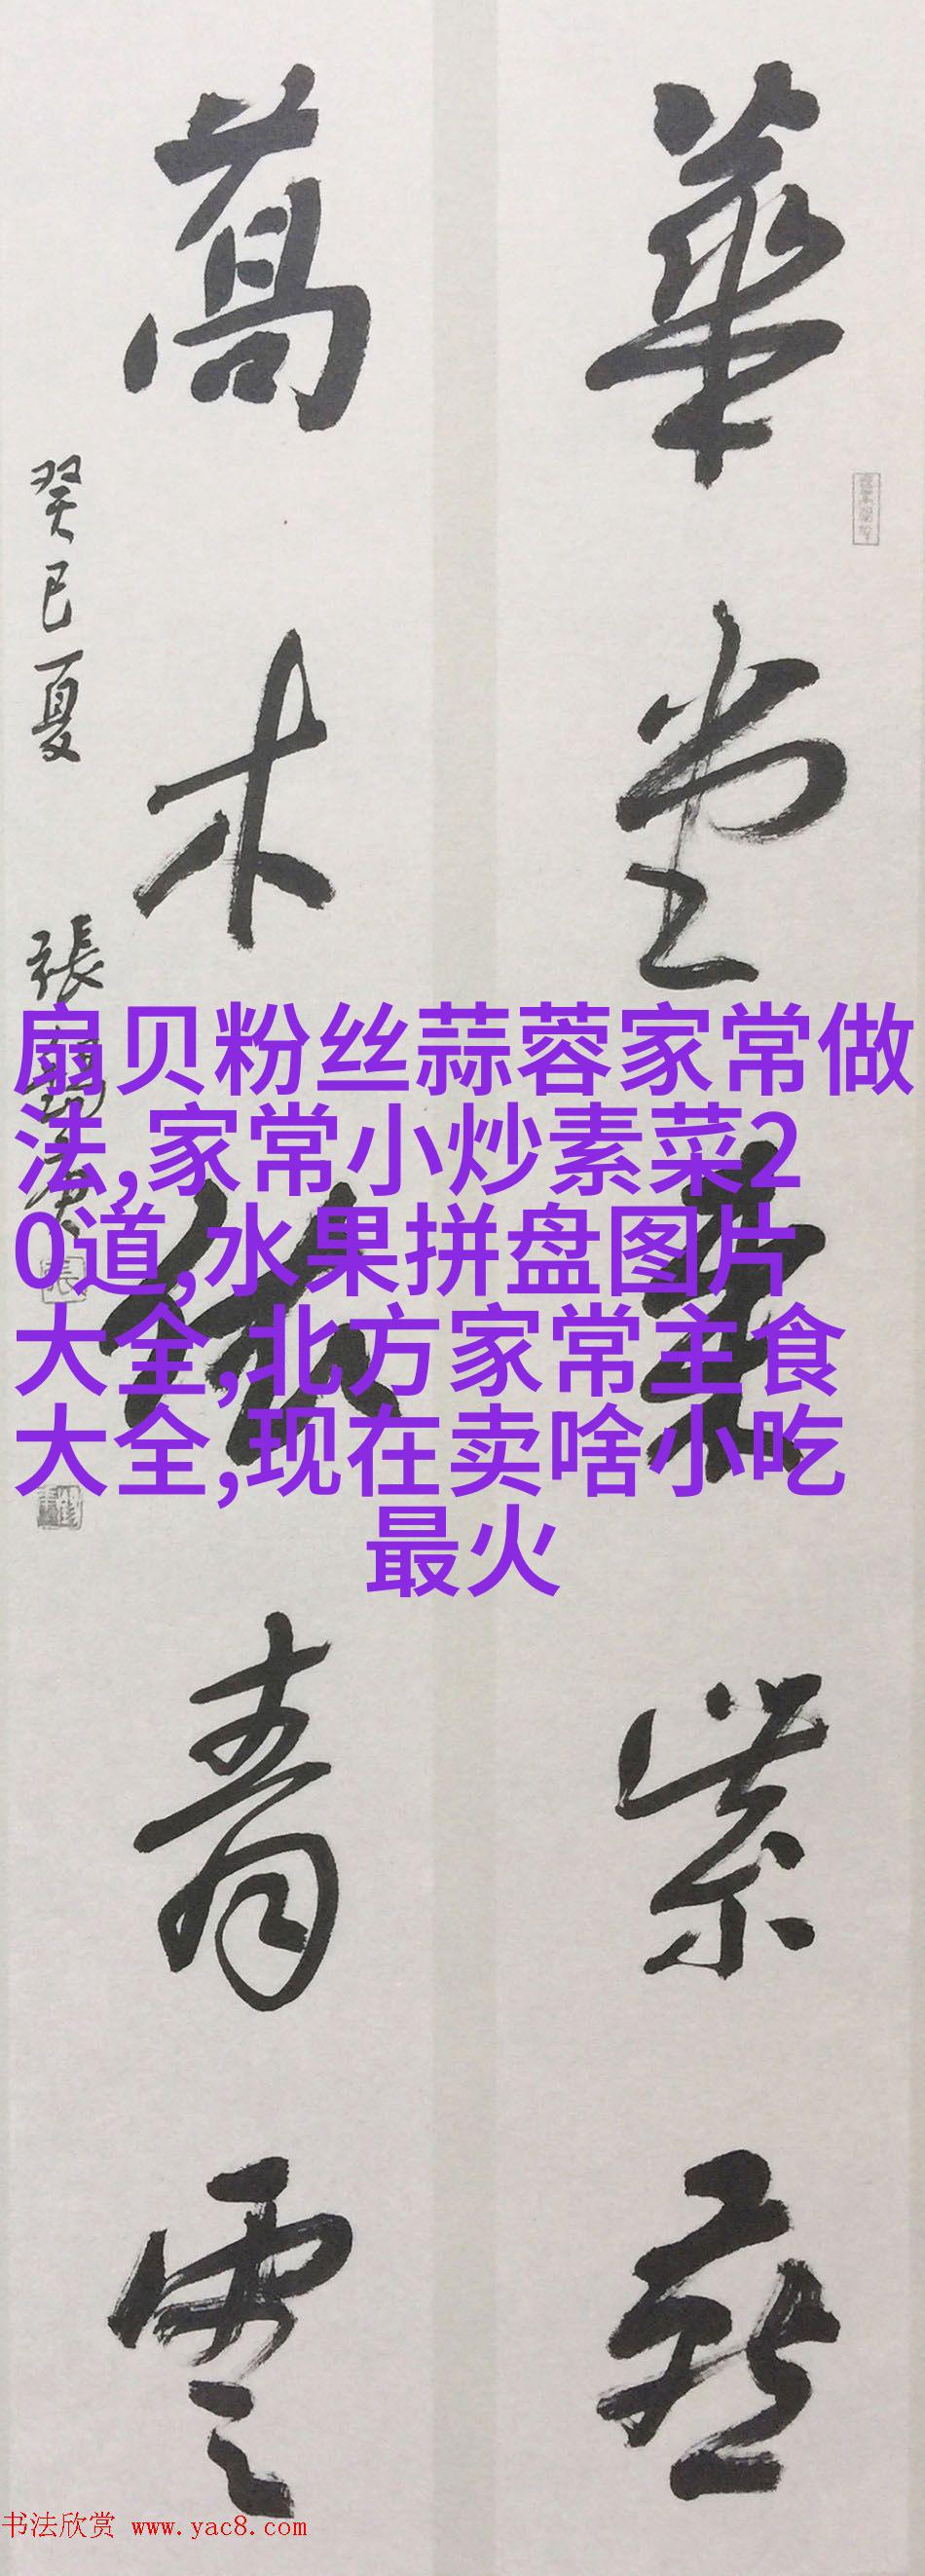 華堂
紫
萬木
青雲
癸巳夏
張
扇贝粉丝蒜蓉家常做
法,家常小炒素菜2
0道,水果拼盘图片
大全,北方家常主食
大全,现在卖啥小吃
最火
书法欣赏 www.yac8.com